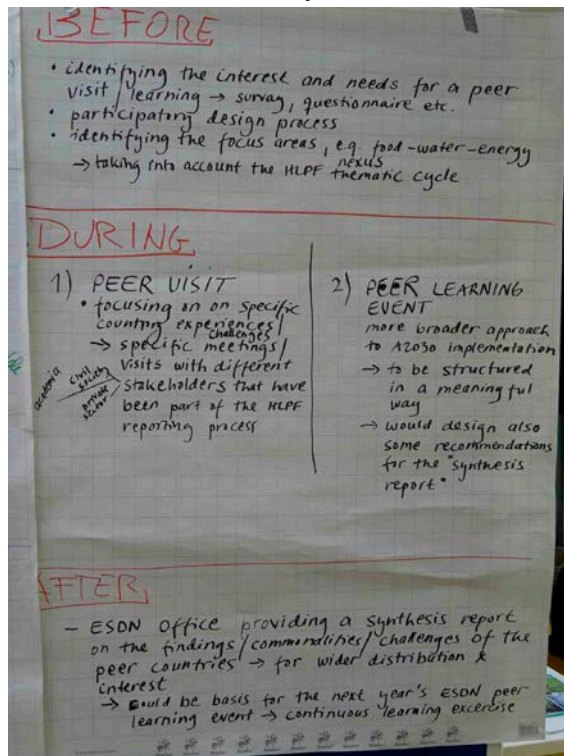 BEFORE
• identifying the interest and needs for a peer
visit / learning → survay, questionnaire etc.
• participatory design process
• identifying the focus areas, e.g. food-water-energy
nexus
→ taking into account the HLPF thematic cycle
DURING
1) PEER VISIT
• focusing on on specific
country experiences/
challenges
→ specific meetings/
visits with different
stakeholders that have
been part of the HLPF
reporting process
academia
civil
society
private
sector
2) PEER LEARNING
EVENT
more broader approach
to A2030 implementation
→ to be structured
in a meaningful
way
→ would design also
some recommendations
for the "synthesis
report"
AFTER
- ESDN Office providing a synthesis report
on the findings/commonalities/challenges of the
peer countries → for wider distribution &
interest
→ Could be basis for the next year's ESDN peer
learning event → continuous learning excercise